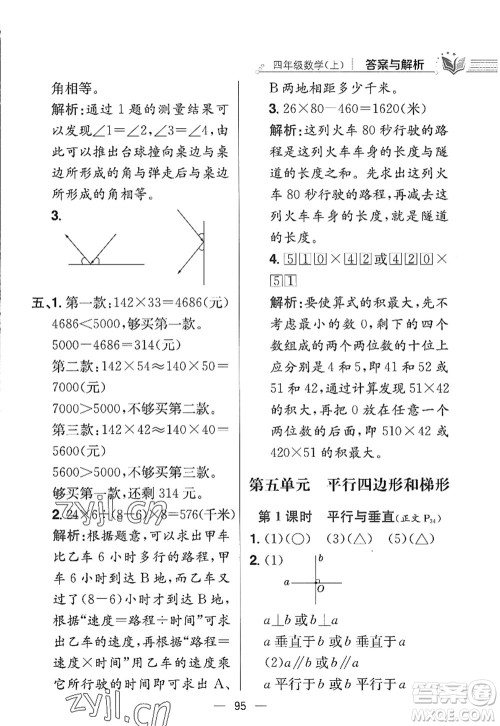 四年级数学(上) 答案与解析
角相等。
解析：通过 1 题的测量结果可
以发现：∠1=∠3，∠2=∠4，由
此可以推出台球撞向桌边与桌边
所形成的角与弹走后与桌边
所形成的角相等。
3.
五、1. 第一款：142×33=4686(元)
4686<5000，够买第一款。
5000-4686=314(元)
第二款：142×54+40=7000
(元)
7000>5000，不够买第二款。
第三款：142×42=5964(元)
5964>5000，不够买第三款。
够买第一款，还剩 314 元。
2. 24×6÷(8-6)×8=576(千米)
解析：根据题意，可以求出甲车
比乙车 6 小时多行的路程，这
是乙车 6 小时到达 B 地后，甲
车(8-6)小时到达 B 地的路
程，根据“路程÷时间”可以求
出甲车的速度，再根据“路程=
速度×时间”，用甲车的速度乘
甲车行驶的时间可以求出 A、
B 两地相距多少千米。
3. 26×80-460=1620(米)
解析：这列火车 80 秒行驶的路
程是这列火车车身的长度与隧
道的长度之和。先求出这列火
车 80 秒行驶的路程，再减去这
列火车车身的长度，就是隧道
的长度。
4. 510×42或420
×51
解析：要使算式的积最大，先不
考虑 0，剩下的四个数字组成
的两个两位数的十位上的数字
应分别是 4 和 5，即 41 和 52
或 51 和 42。通过计算发现，
51×42 的积大，再添一个 0 在
两位数的后面，即 510×42 或
420×51 的积最大。
第五单元 平行四边形和梯形
第 1 课时 平行与垂直(正文 P₃₄)
1. (1)(○) (3)(△) (5)(△)
2. (1)
b
a
a⊥b 或 b⊥a
a 垂直于 b 或 b 垂直于 a
(2)a∥b 或 b∥a
a 平行于 b 或 b 平行于 a
95
zyjl.cn
zyjl.cn